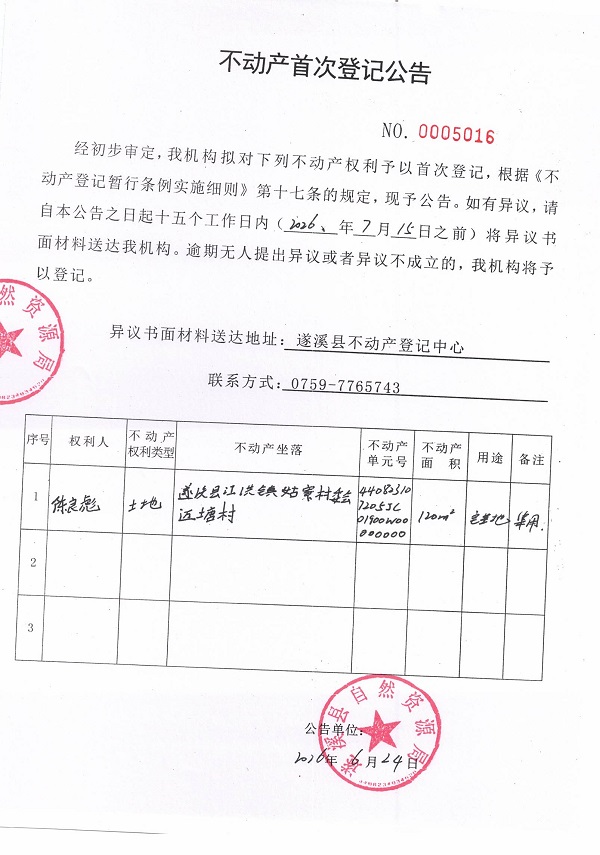 不动产首次登记公告
NO. 0005016
经初步审定，我机构拟对下列不动产权利予以首次登记，根据《不
动产登记暂行条例实施细则》第十七条的规定，现予公告。如有异议，请
自本公告之日起十五个工作日内（2026、年7月15日之前）将异议书
面材料送达我机构。逾期无人提出异议或者异议不成立的，我机构将予
以登记。
然资源局
异议书面材料送达地址：遂溪县不动产登记中心
联系方式：0759-7765743
序号 权利人 不动产权利类型 不动产坐落 不动产单元号 不动产面积 用途 备注
1 陈良彪 土地 遂溪县江洪镇姑寮村委会 44082310
边塘村 7205JC 120m² 宅基地 单用
01900W00
000000
2
3
遂溪县自然资源局
公告单位：
2026年6月24日